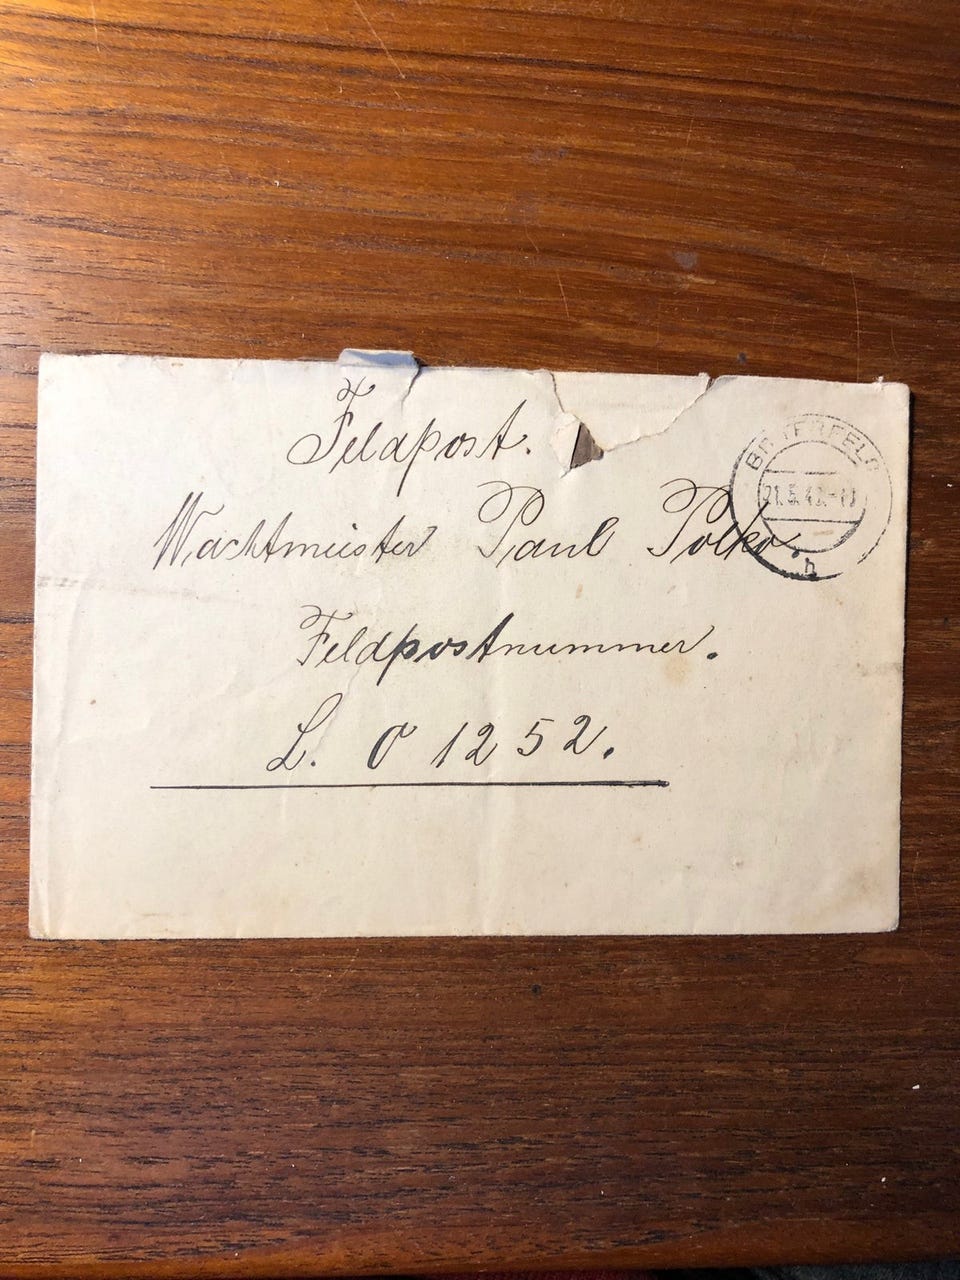 Feldpost.
Wachtmeister Paul Polko.
Feldpostnummer.
L. O 1252.
BITTERFELD
h